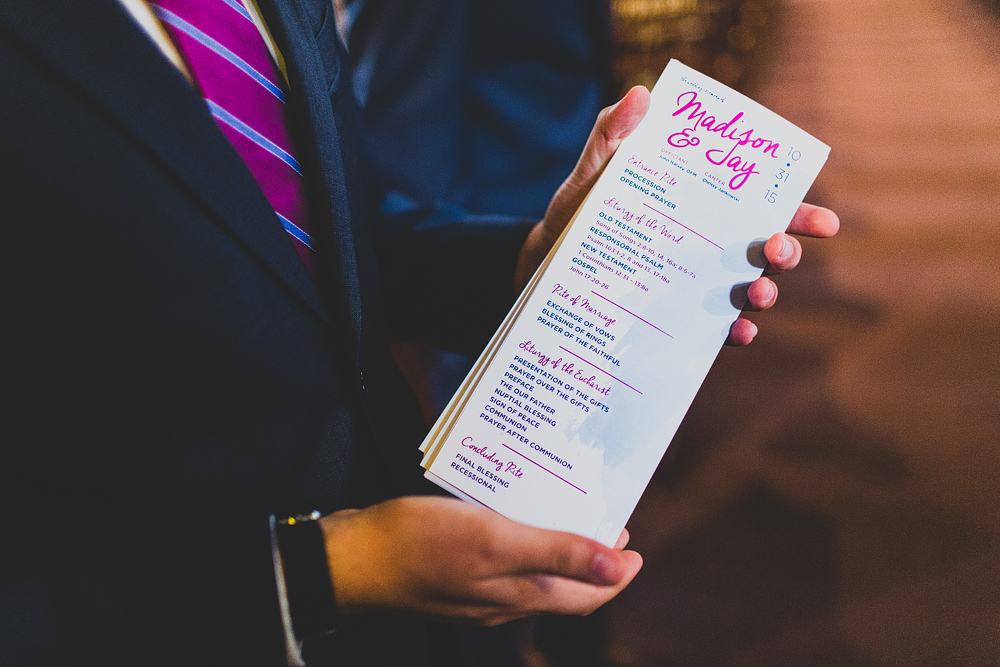 the wedding ceremony of
Madison
& Jay
10
31
15
OFFICIANT
CANTER
Entrance Rite
PROCESSION
OPENING PRAYER
Liturgy of the Word
OLD TESTAMENT
Song of Songs 2:8-10, 14, 16a; 8:6-7a
RESPONSORIAL PSALM
Psalm 103:1-2, 8 and 13, 17-18a
NEW TESTAMENT
1 Corinthians 12:31 - 13:8a
GOSPEL
John 17:20-26
Rite of Marriage
EXCHANGE OF VOWS
BLESSING OF RINGS
PRAYER OF THE FAITHFUL
Liturgy of the Eucharist
PRESENTATION OF THE GIFTS
PRAYER OVER THE GIFTS
PREFACE
THE OUR FATHER
NUPTIAL BLESSING
SIGN OF PEACE
COMMUNION
PRAYER AFTER COMMUNION
Concluding Rite
FINAL BLESSING
RECESSIONAL